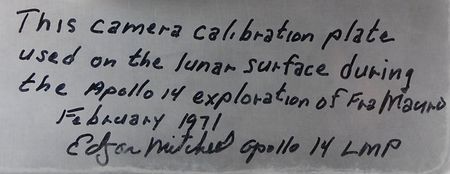 This camera calibration plate
used on the lunar surface during
the Apollo 14 exploration of Fra Mauro
February 1971
Edgar Mitchell Apollo 14 LMP